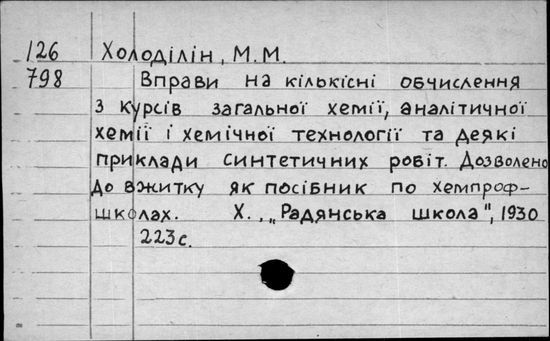 126 Холоділін, М.М.
798 Вправи на кількісні обчислення
з курсів загальної хемії, аналітичної
хемії і хемічної технології та деякі
приклади синтетичних робіт. Дозволено
до вжитку як посібник по хемпроф-
школах. Х., „Радянська школа", 1930
223с.